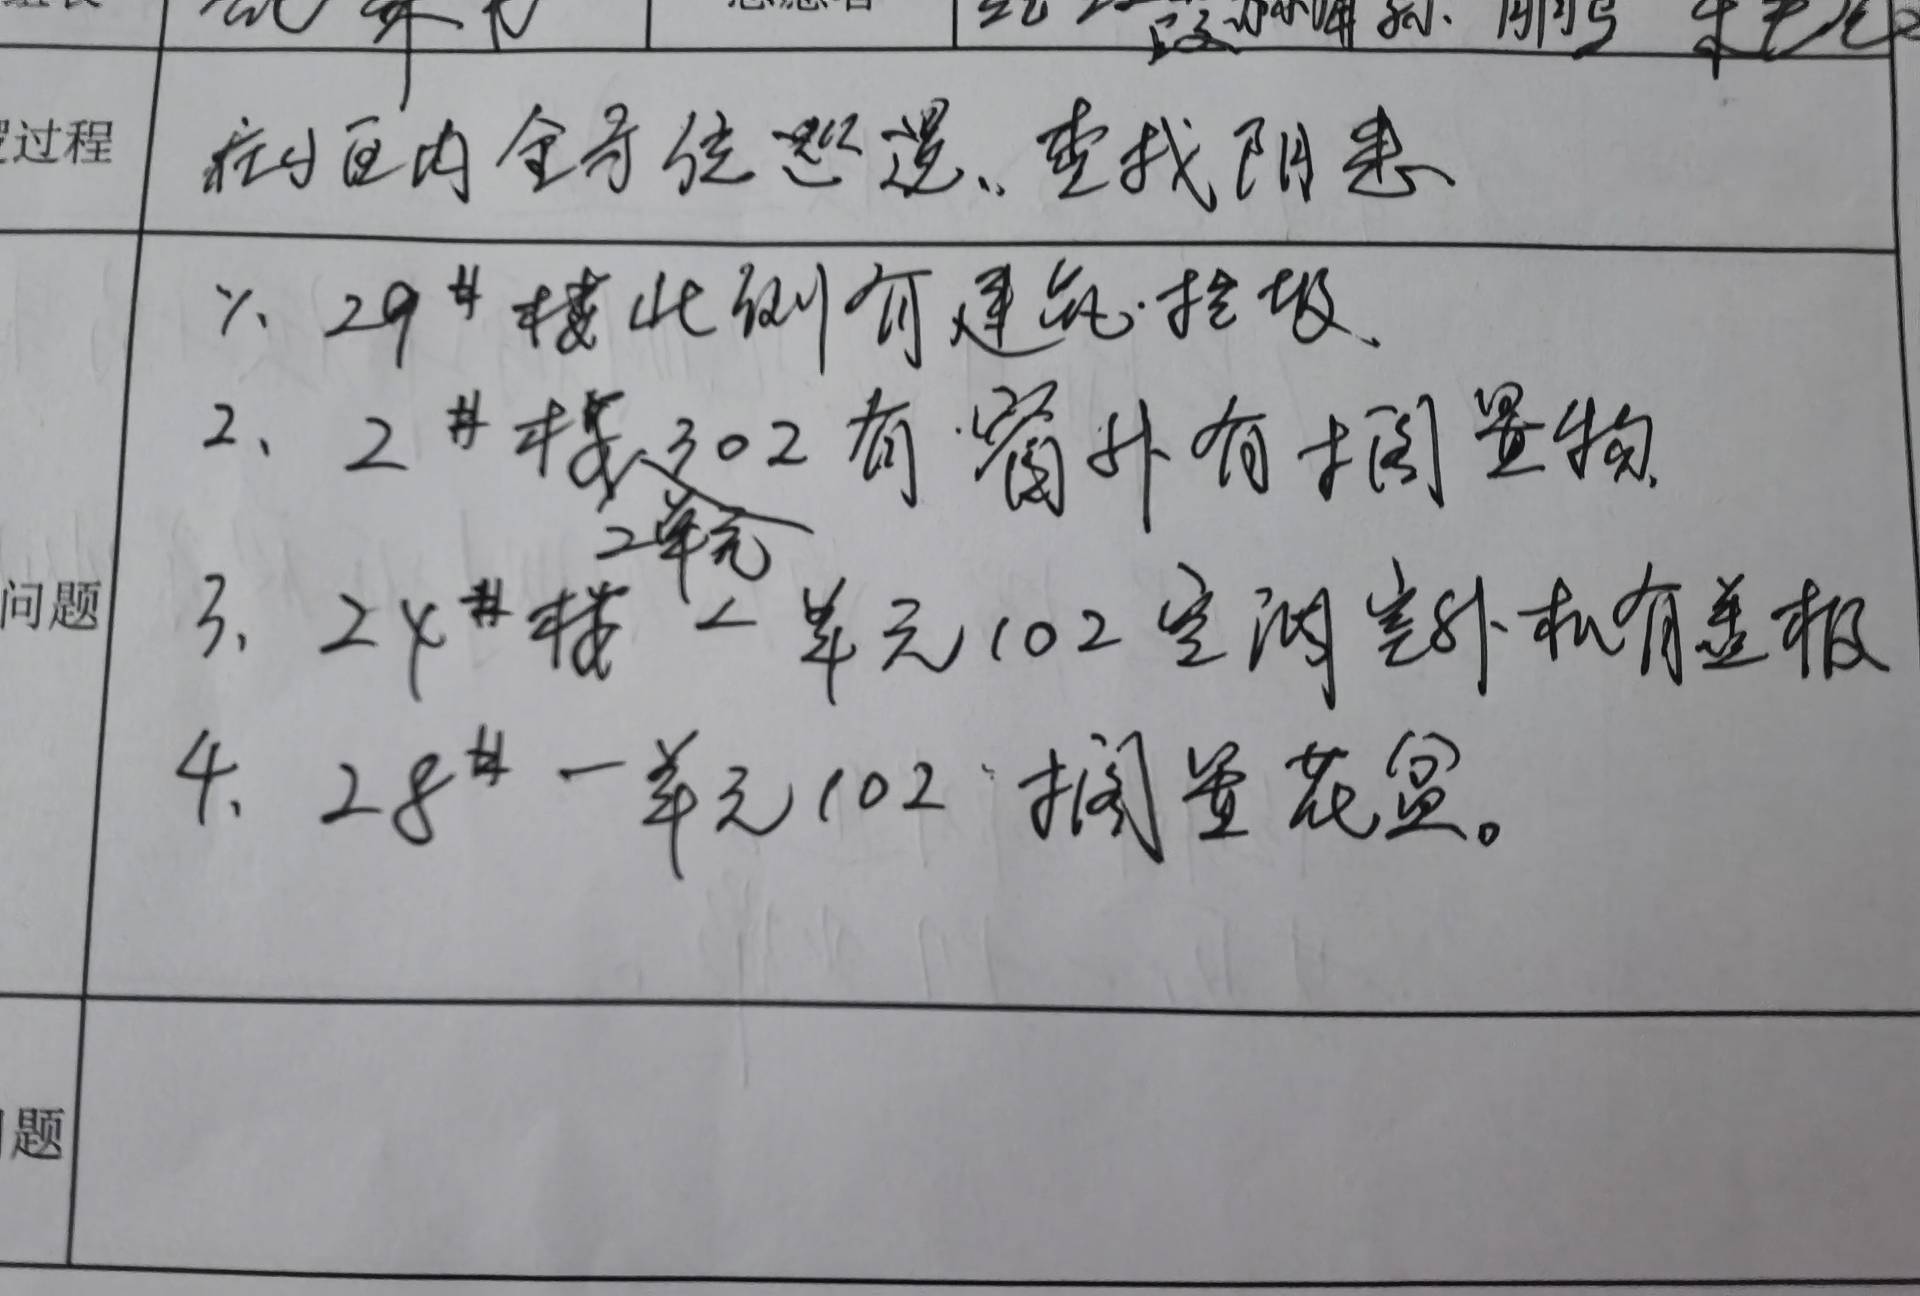 过程 在小区内全方位巡逻、查找阴患
1、29#楼北侧有建筑垃圾、
2、2#楼302有窗外有搁置物、
2单元
问题
3、24#楼 2单元102空调室外机有盖板
4、28#一单元102搁置花盆。
题